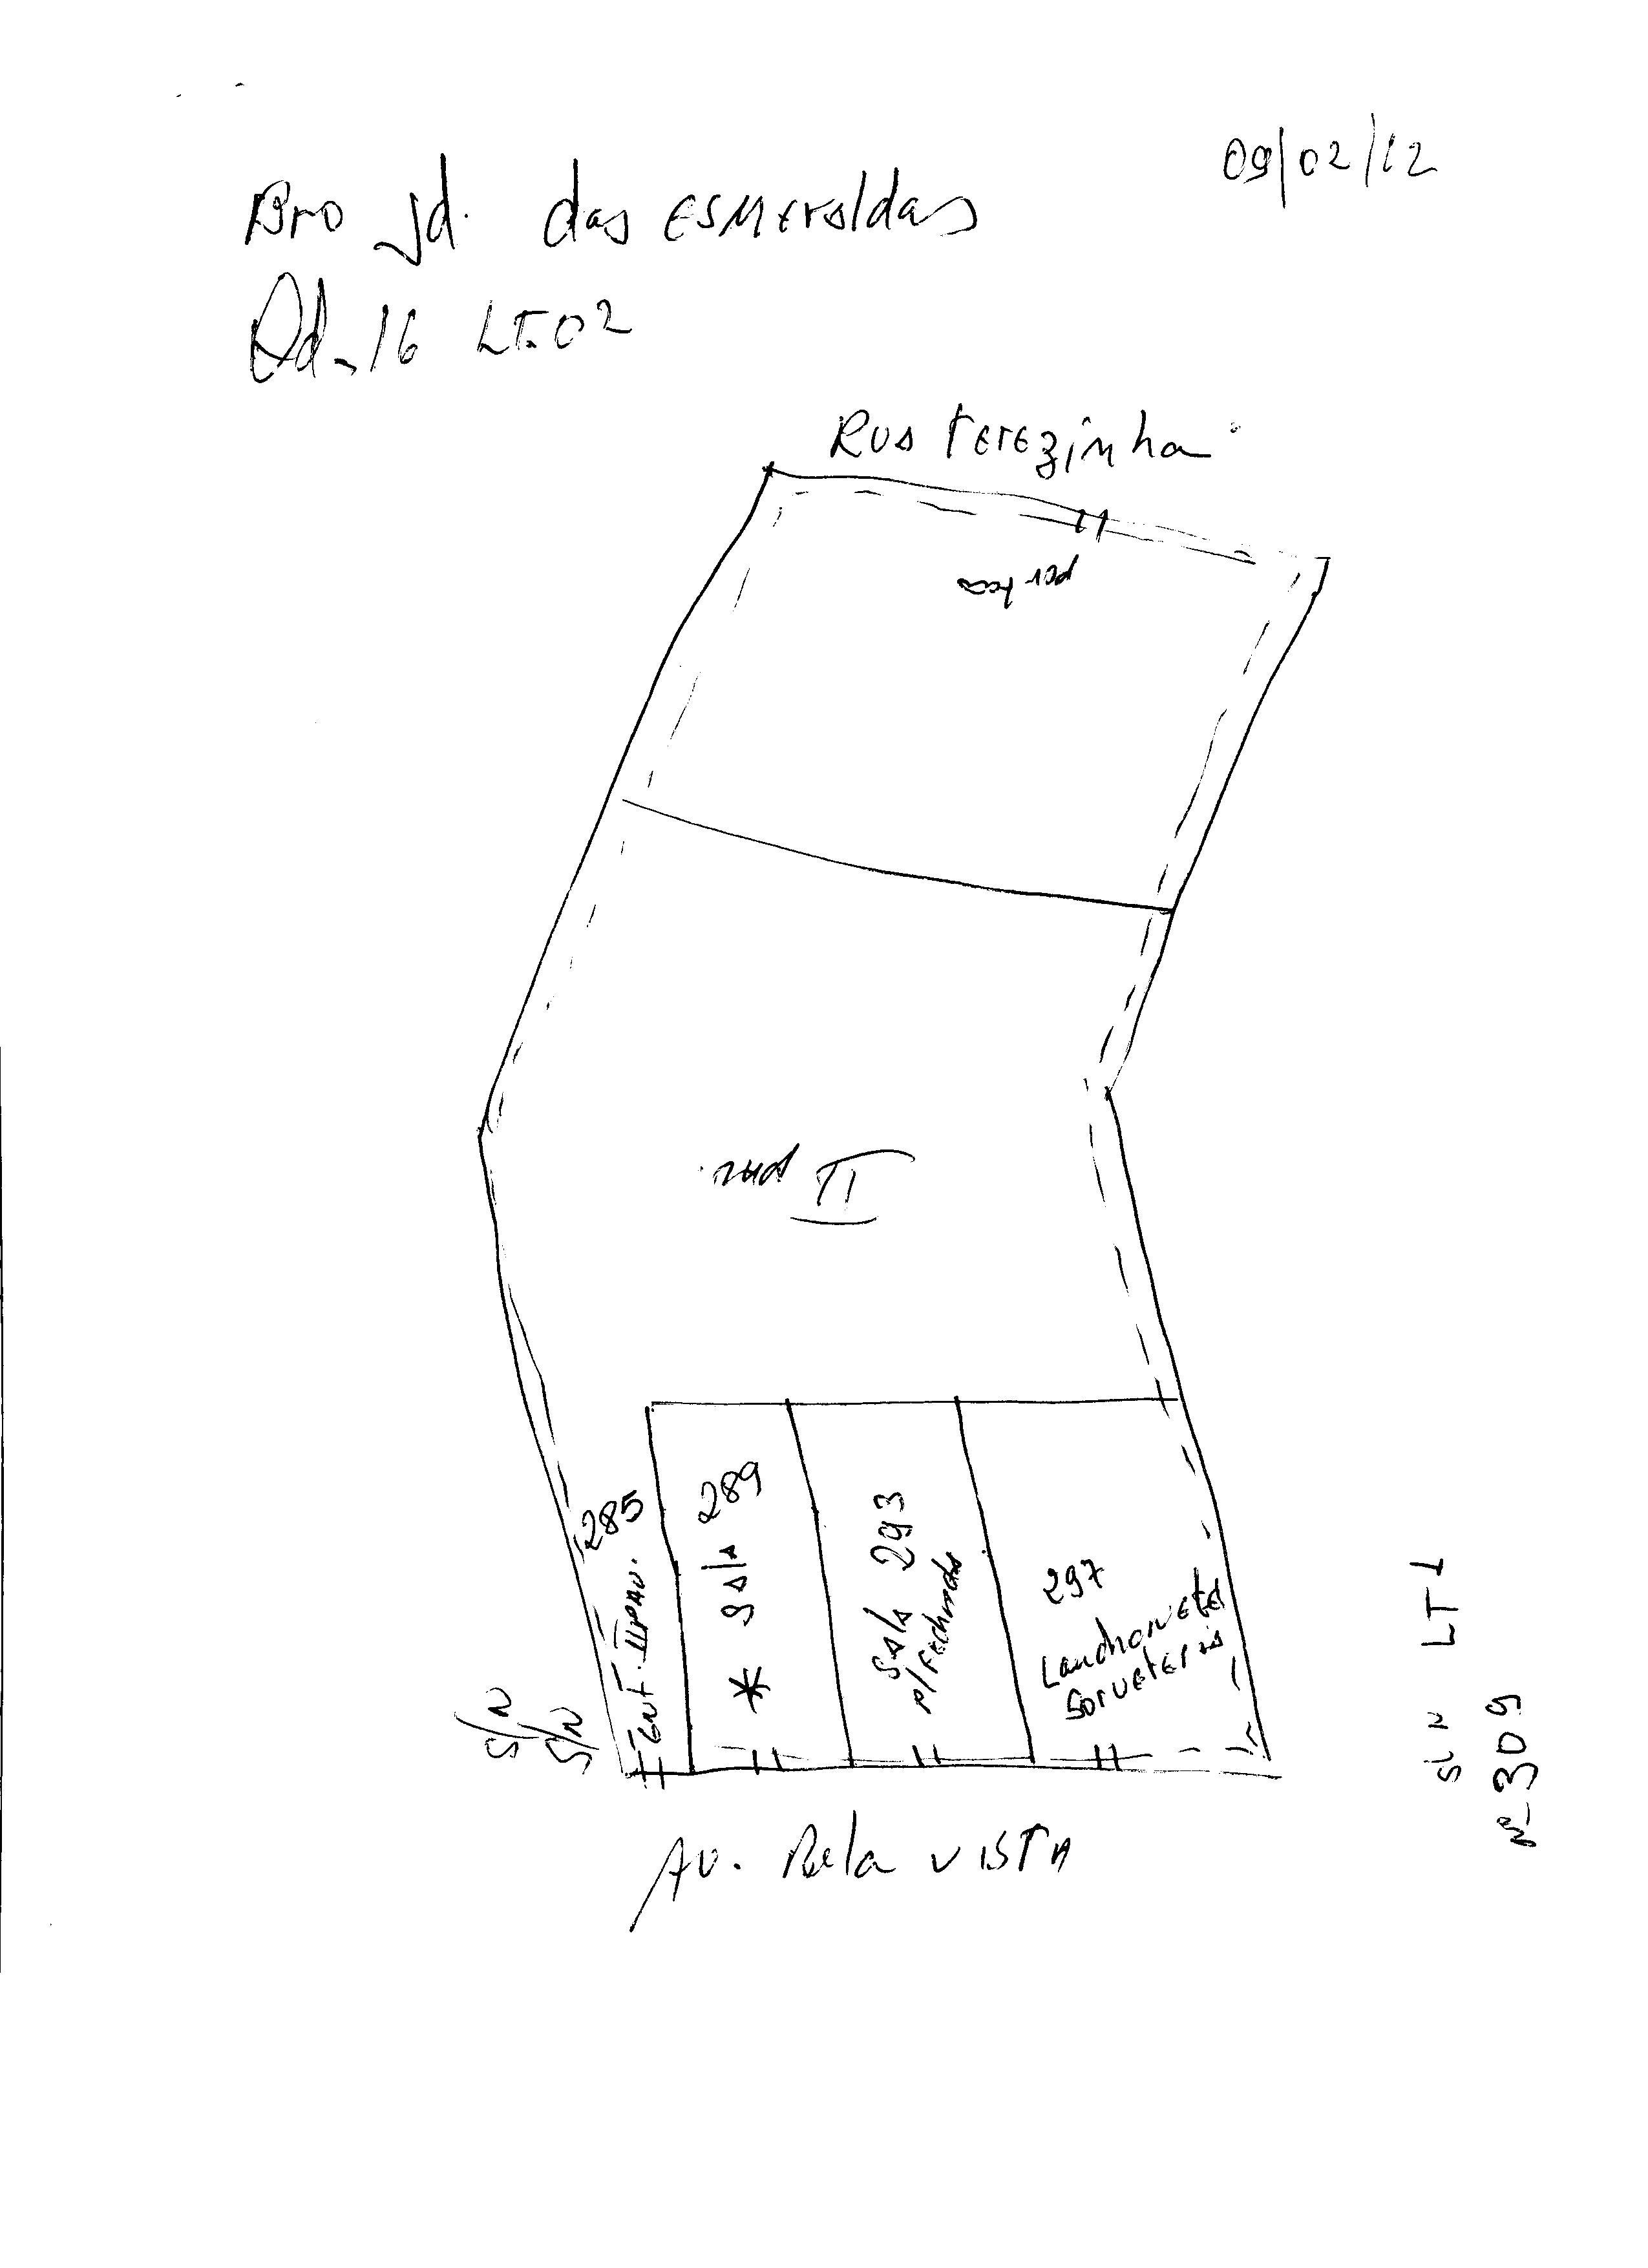 09/02/12
Bro Jd. das Esmeraldas
Qd-16 LT.02
Rua Terezinha
II
285
Ent. II Pav.
289
Sala
*
Sala 293
p/ Fechada
297
Lanchonete
Sorveteria
S/N
S/N
S/N LT 1
Nº 309
Av. Bela Vista